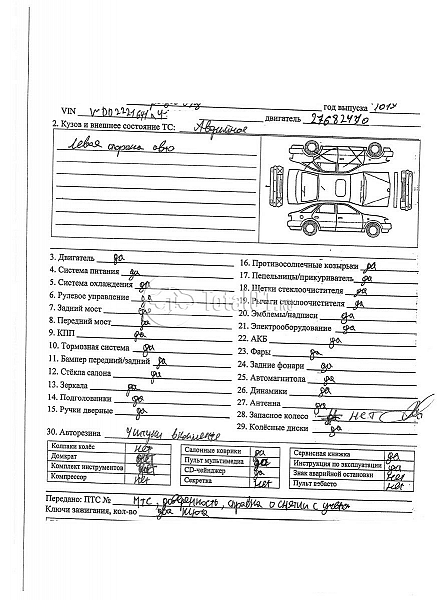 год выпуска
VIN WDD2221641A двигатель 27682470
2. Кузов и внешнее состояние ТС: Аварийное
левая сторона авто
3. Двигатель да
4. Система питания да
5. Система охлаждения да
6. Рулевое управление да
7. Задний мост да
8. Передний мост да
9. КПП да
10. Тормозная система да
11. Бампер передний/задний да
12. Стёкла салона да
13. Зеркала да
14. Подголовники да
15. Ручки дверные да
16. Противосолнечные козырьки да
17. Пепельницы/прикуриватель да
18. Щетки стеклоочистителя да
19. Рычаги стеклоочистителя да
20. Эмблемы/надписи да
21. Электрооборудование да
22. АКБ да
23. Фары да
24. Задние фонари да
25. Автомагнитола да
26. Динамики да
27. Антенна да
28. Запасное колесо нет
29. Колёсные диски да
30. Авторезина 4 штуки
Колпаки колёс нет
Домкрат нет
Комплект инструментов нет
Компрессор нет
Салонные коврики да
Пульт мультимедиа да
CD-чейнджер да
Секретка нет
Сервисная книжка да
Инструкция по эксплуатации да
Знак аварийной остановки нет
Пульт вэбасто нет
Передано: ПТС № ПТС, доверенность, справка о снятии с учета
Ключи зажигания, кол-во два